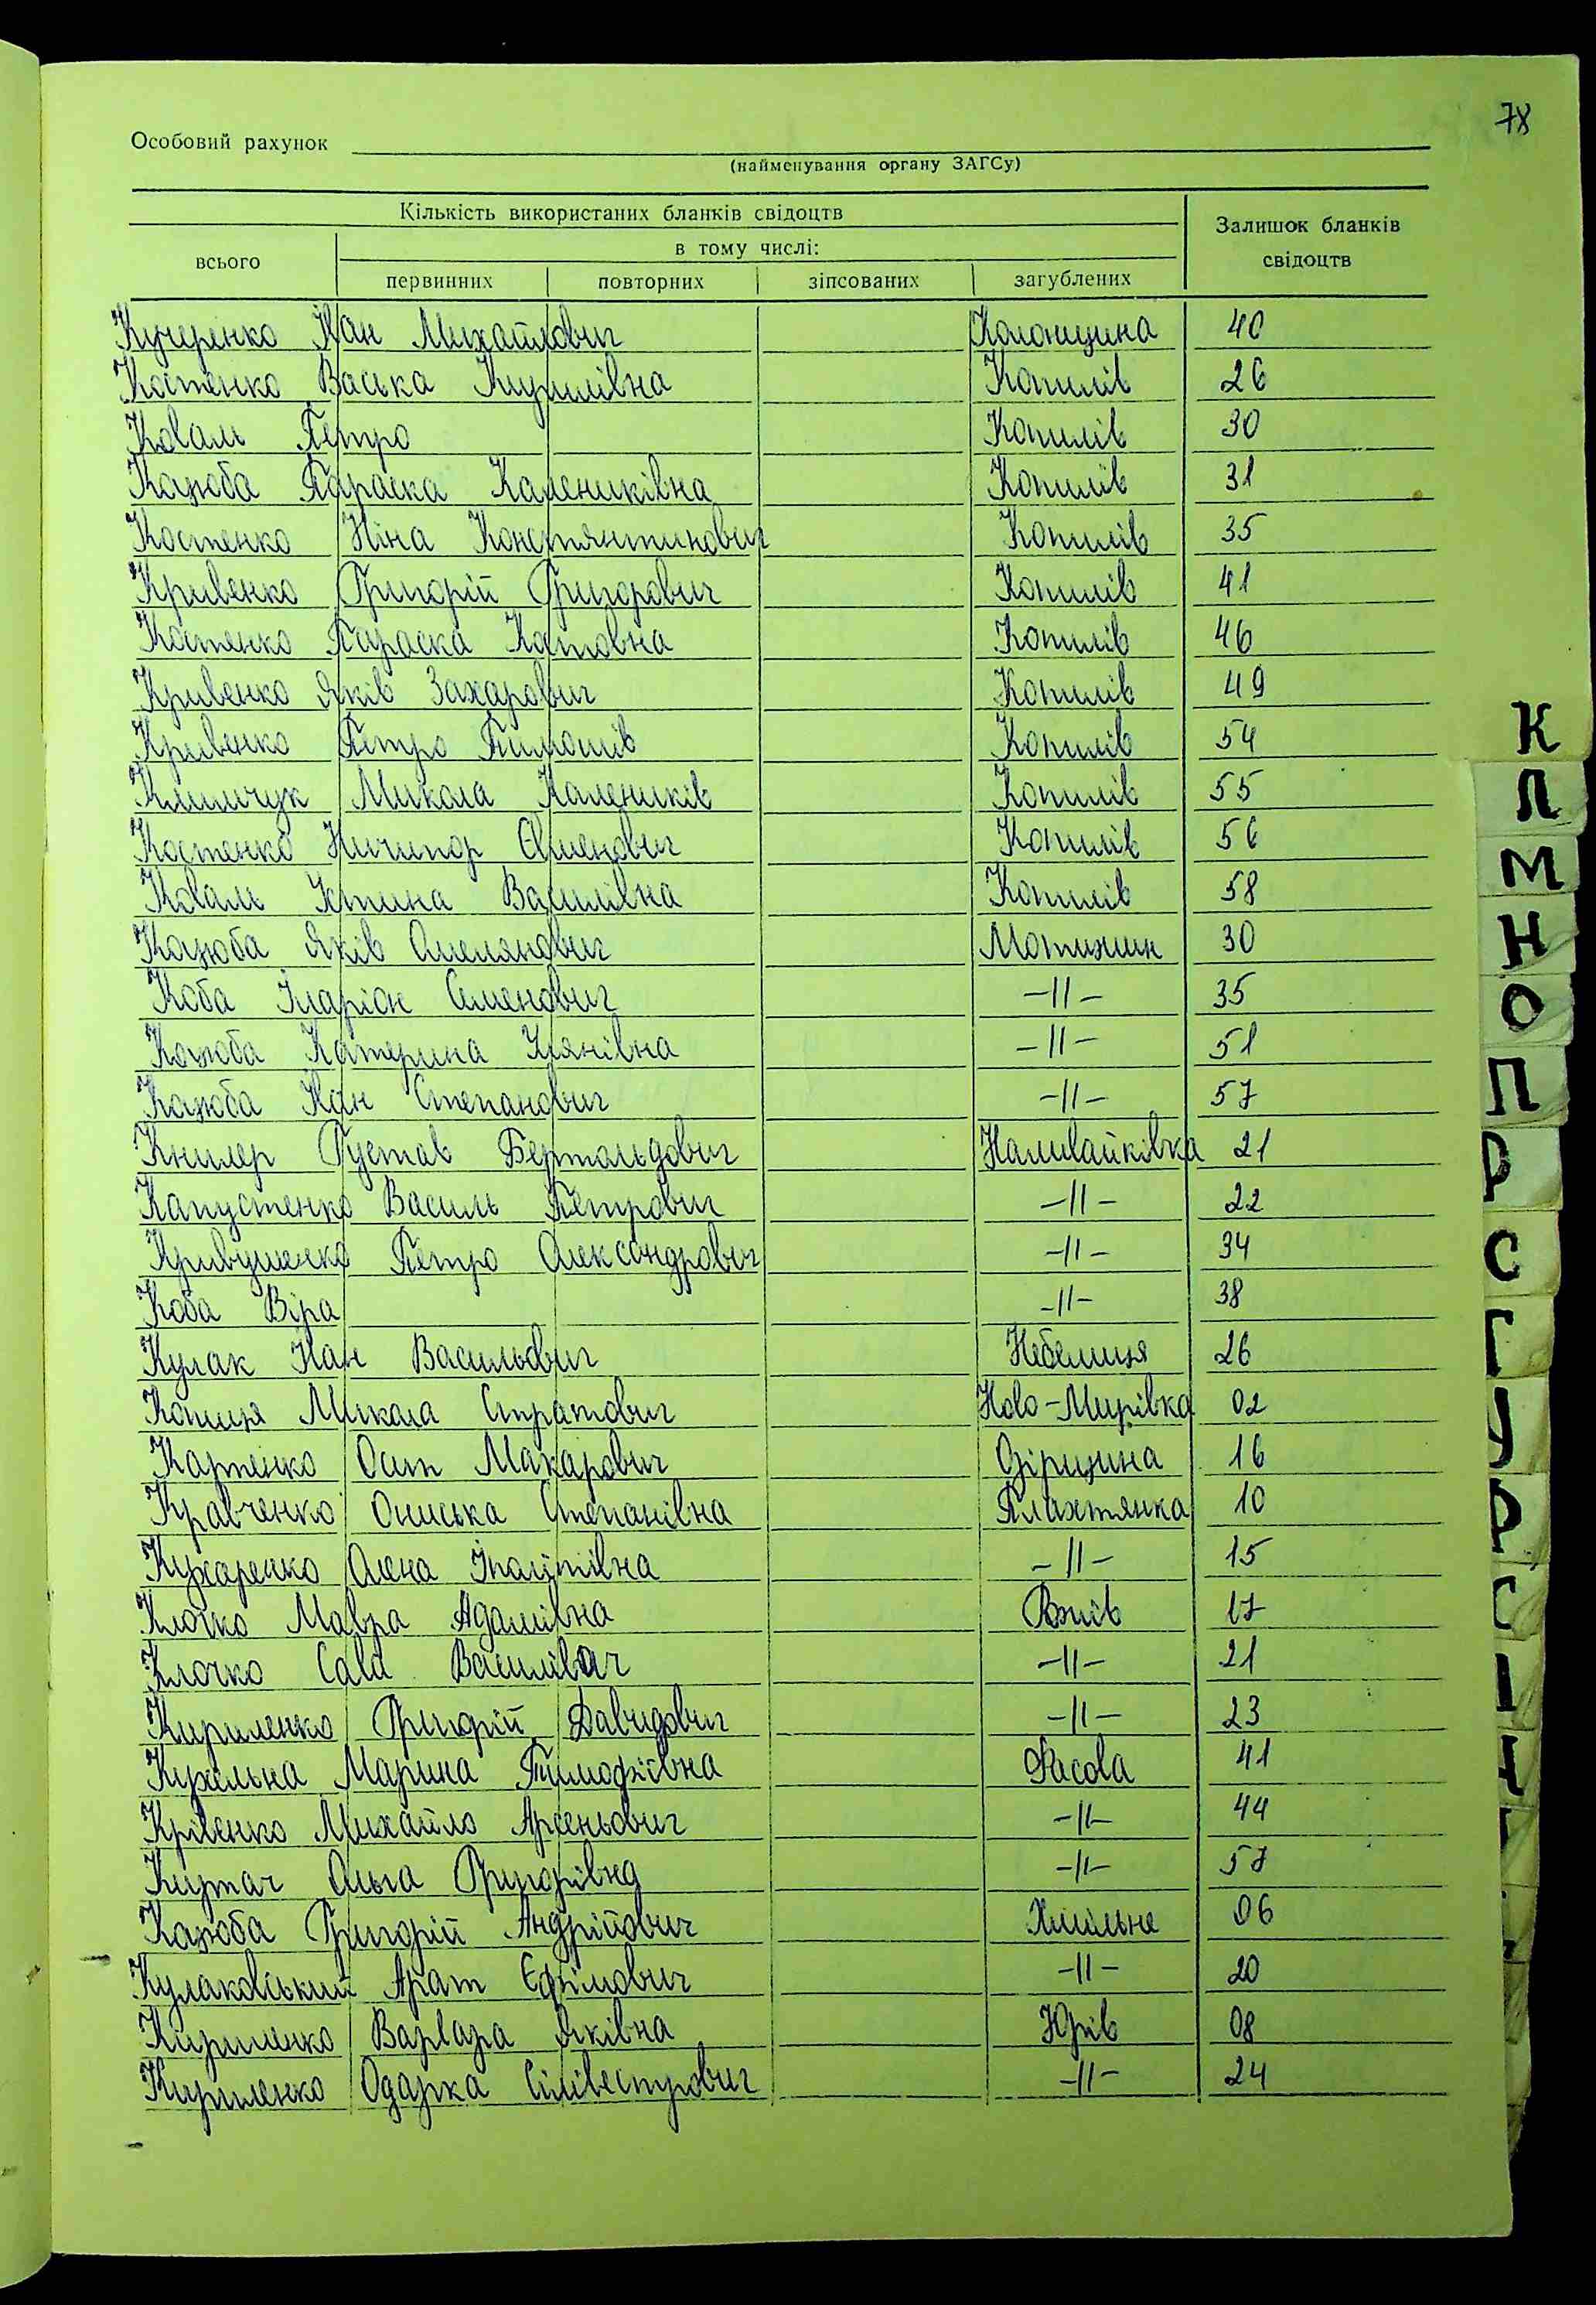 78
Особовий рахунок
(найменування органу ЗАГСу)
Кількість використаних бланків свідоцтв
Залишок бланків свідоцтв
всього
в тому числі:
первинних повторних зіпсованих загублених
Кучеренко Іван Михайлович Колонщина 40
Костенко Васька Кирилівна Копилів 26
Коваль Петро Копилів 30
Кажоба Параска Калениківна Копилів 31
Костенко Ніна Константинович Копилів 35
Кривенко Григорій Григорович Копилів 41
Костенко Параска Копилів 46
Кривенко Яків Захарович Копилів 49
Кривенко Петро Тимошів Копилів 54
Климчук Микола Калеників Копилів 55
Костенко Ничипор Семенович Копилів 56
Коваль Устина Василівна Копилів 58
Кажоба Яків Омелянович Мотижин 30
Коба Іларіон Семенович -//- 35
Кажоба Катерина Улянівна -//- 51
Кажоба Іван Степанович -//- 57
Книлер Густав Бертольдович Наливайківка 21
Капустенко Василь Петрович -//- 22
Кривушенко Петро Олександрович -//- 34
Коба Віра -//- 38
Кулак Іван Васильович Небелиця 26
Копиця Микола Стратович Ново-Мирівка 02
Карпенко Осип Макарович Озірщина 16
Кравченко Ониська Степанівна Плахтянка 10
Кухаренко Олена Іполитівна -//- 15
Клочко Мавра Адамівна Рожів 17
Клочко Сава Василівич -//- 21
Кириленко Григорій Давидович -//- 23
Кужільна Марина Тимофіївна Фасова 41
Крівенко Михайло Арсеньович -//- 44
Киртач Ольга Григорівна -//- 57
Кажоба Григорій Андрійович Хмільне 06
Кулаковський Арат Єфімович -//- 20
Кириленко Варвара Яківна Юрів 08
Кириленко Одарка Сілівестрович -//- 24
К
Л
М
Н
О
П
Р
С